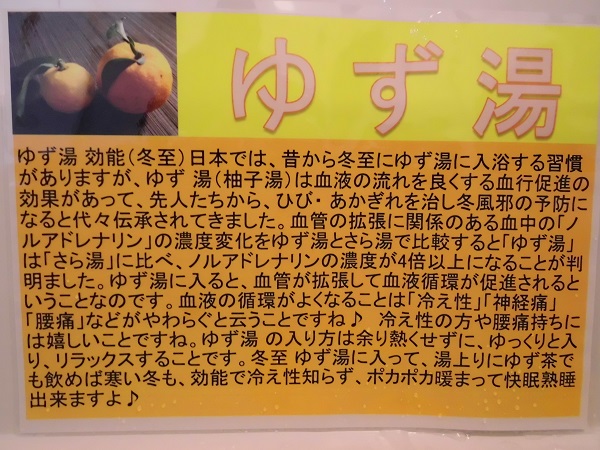 ゆず湯
ゆず湯 効能(冬至)日本では、昔から冬至にゆず湯に入浴する習慣
がありますが、ゆず 湯(柚子湯)は血液の流れを良くする血行促進の
効果があって、先人たちから、ひび・ あかぎれを治し冬風邪の予防に
なると代々伝承されてきました。血管の拡張に関係のある血中の「ノ
ルアドレナリン」の濃度変化をゆず湯とさら湯で比較すると「ゆず湯」
は「さら湯」に比べ、ノルアドレナリンの濃度が4倍以上になることが判
明ました。ゆず湯に入ると、血管が拡張して血液循環が促進されると
いうことなのです。血液の循環がよくなることは「冷え性」「神経痛」
「腰痛」などがやわらぐと云うことですね♪ 冷え性の方や腰痛持ちに
は嬉しいことですね。ゆず湯 の入り方は余り熱くせずに、ゆっくりと入
り、リラックスすることです。冬至 ゆず湯に入って、湯上りにゆず茶で
も飲めば寒い冬も、効能で冷え性知らず、ポカポカ暖まって快眠熟睡
出来ますよ♪